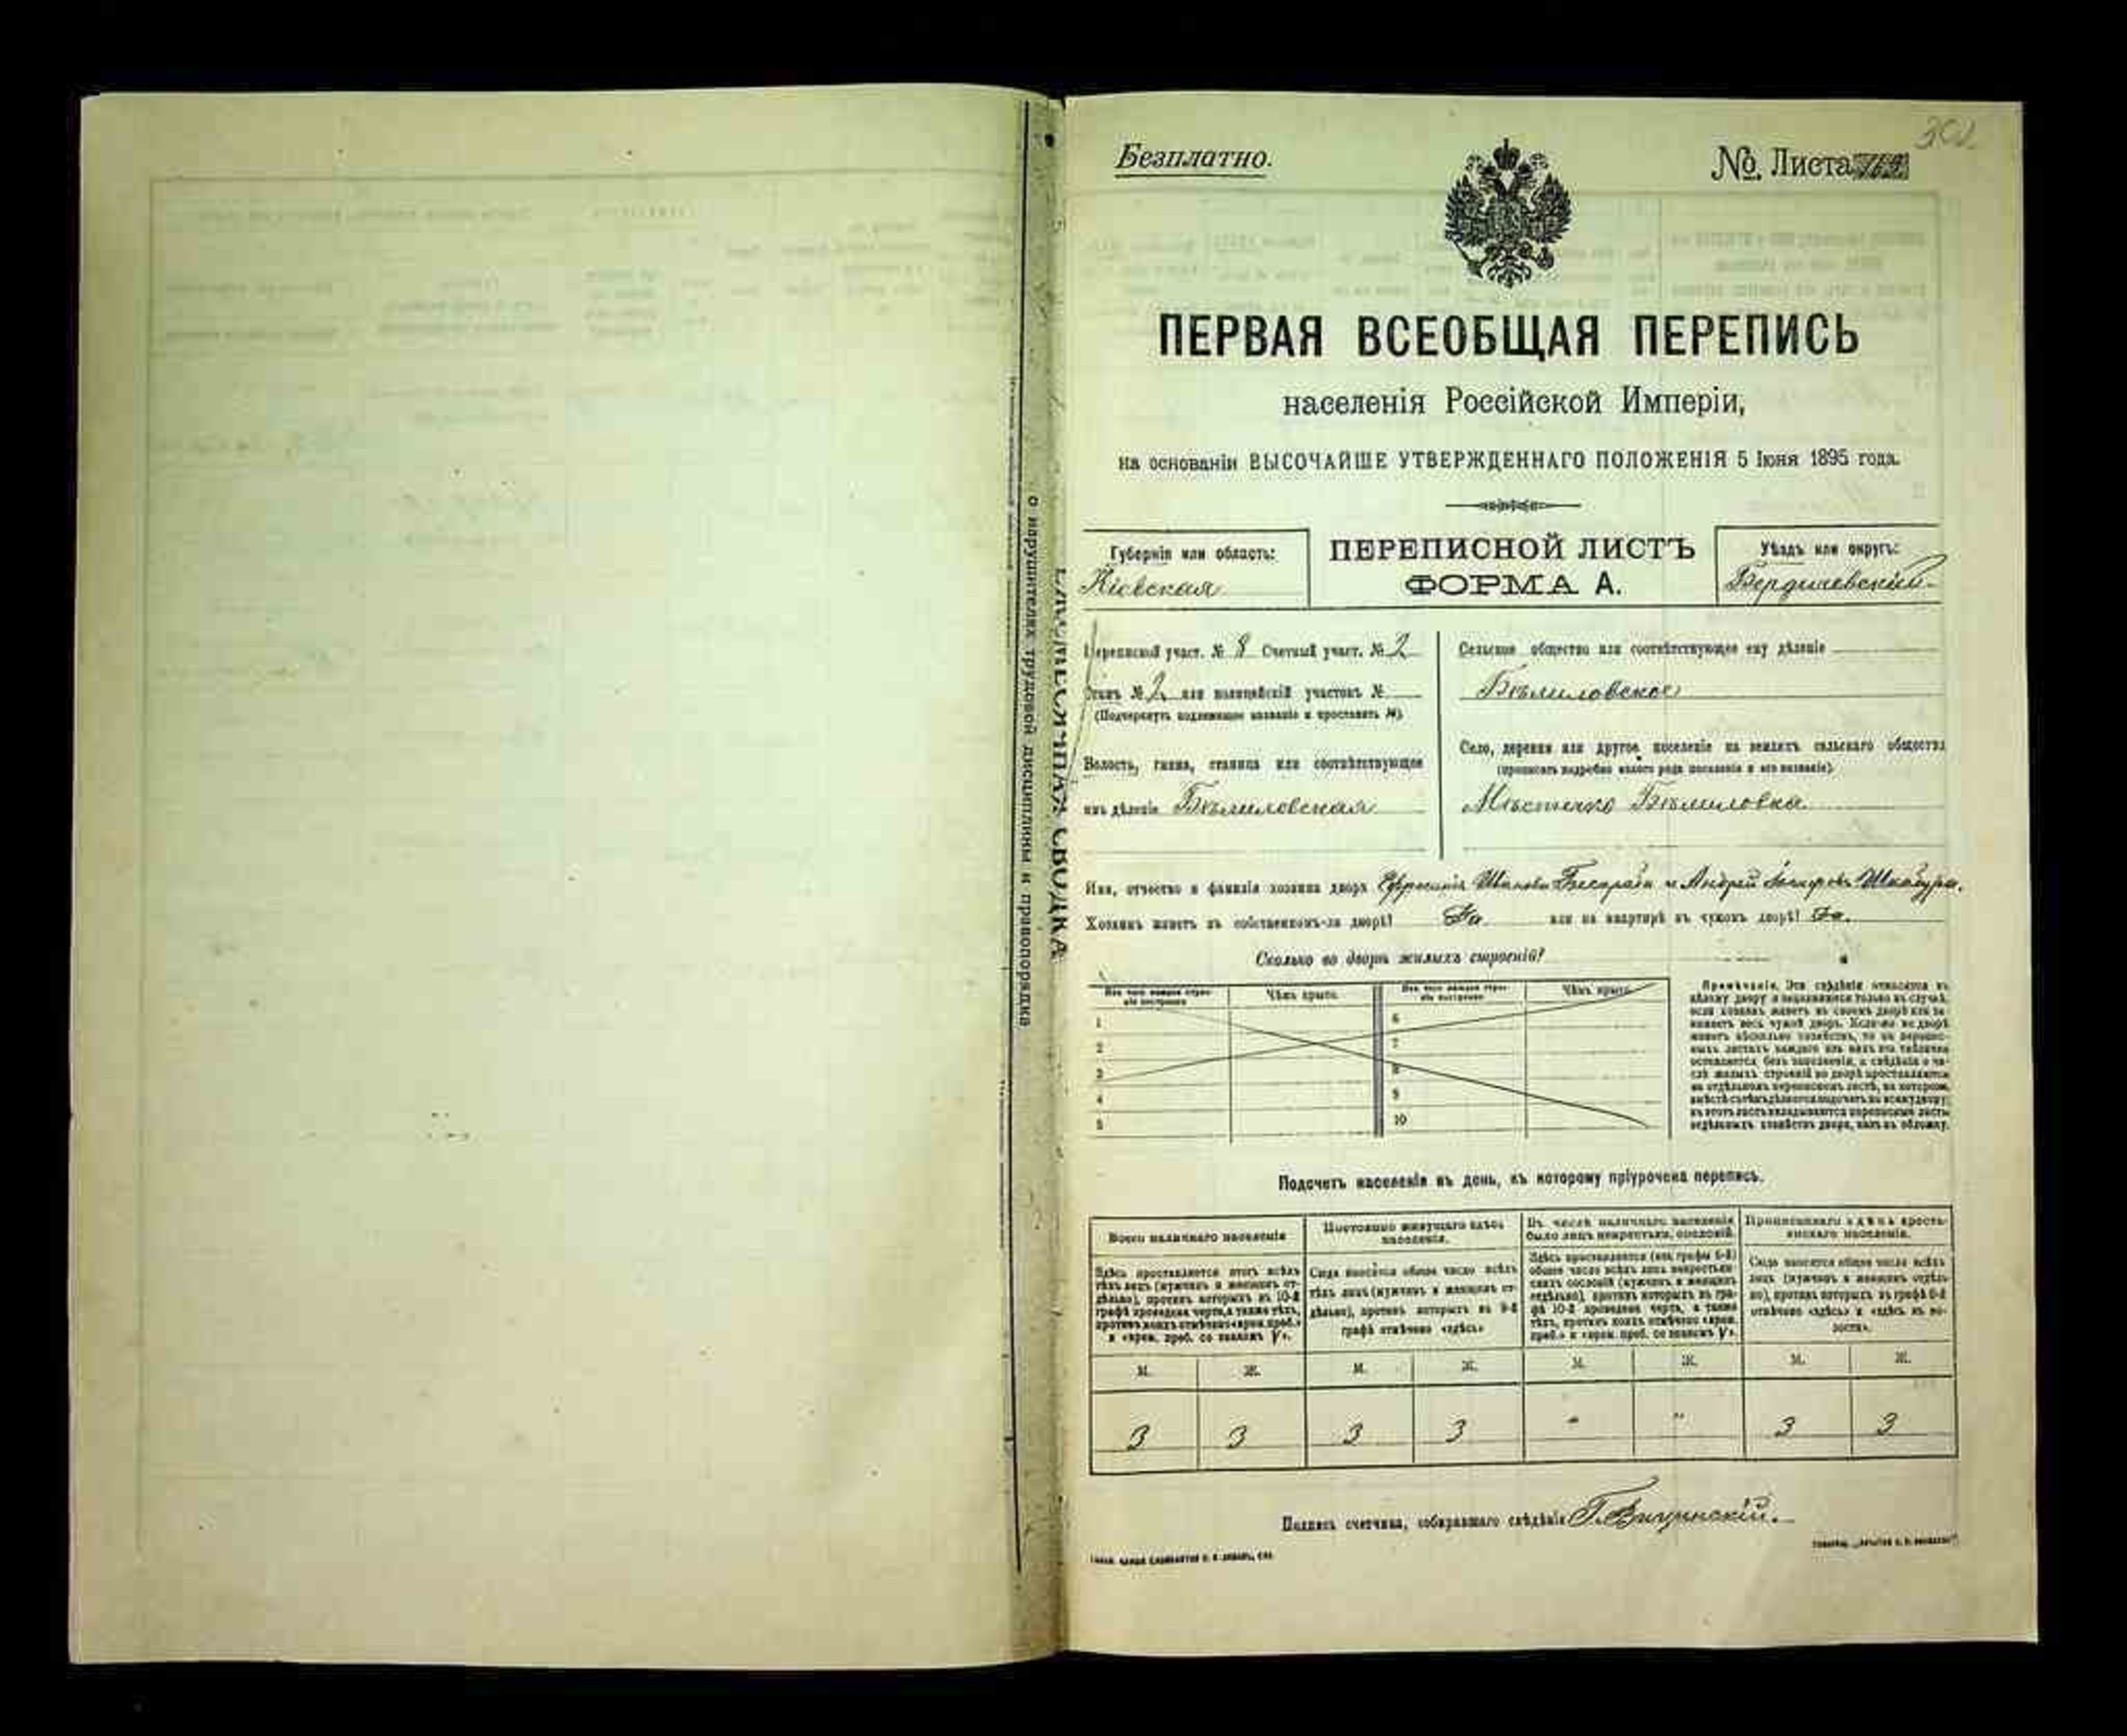 Безплатно.
№. Листа
ПЕРВАЯ ВСЕОБЩАЯ ПЕРЕПИСЬ
населенія Россійской Имперіи,
на основаніи ВЫСОЧАЙШЕ УТВЕРЖДЕННАГО ПОЛОЖЕНІЯ 5 Іюня 1895 года.
Губернія или область:
Кіевская
ПЕРЕПИСНОЙ ЛИСТЪ
ФОРМА А.
Уѣздъ или округъ:
Бердичевскій
Переписной участ. № 8 Счетный участ. № 2
Станъ № 2 или полицейскій участокъ №
(Подчеркнуть подлежащее названіе и проставить №).
Волость, гмина, станица или соотвѣтствующее
имъ дѣленіе Бѣлиловская
Сельское общество или соотвѣтствующее ему дѣленіе
Бѣлиловское
Село, деревня или другое поселеніе на земляхъ сельскаго общества
(прописать подробно какого рода поселеніе и его названіе).
Мѣстечко Бѣлиловка
Имя, отчество и фамилія хозяина двора Ефросинія Иванова и Андрей
Хозяинъ живетъ въ собственномъ-ли дворѣ? Да или на квартирѣ въ чужомъ дворѣ? Да.
Сколько во дворѣ жилыхъ строеній?
Изъ чего каждое строеніе построено
Чѣмъ крыто.
Изъ чего каждое строеніе построено
Чѣмъ крыто.
1
2
3
4
5
6
7
8
9
10
Примѣчаніе. Эти свѣдѣнія относятся къ
цѣлому двору и заполняются только въ случаѣ,
если хозяинъ живетъ въ своемъ дворѣ или за-
нимаетъ весь чужой дворъ. Если-же во дворѣ
живетъ нѣсколько хозяйствъ, то на перепис-
ныхъ листахъ каждаго изъ нихъ эта табличка
оставляется безъ заполненія, а свѣдѣнія о чи-
слѣ жилыхъ строеній во дворѣ проставляются
на отдѣльномъ переписномъ листѣ, на которомъ,
вмѣстѣ съ тѣмъ, дѣлается подсчетъ по всему двору;
въ этотъ листъ вкладываются переписные листы
отдѣльныхъ хозяйствъ двора, какъ въ обложку.
Подсчетъ населенія въ день, къ которому пріурочена перепись.
Всего наличнаго населенія
Здѣсь проставляется итогъ всѣхъ
тѣхъ лицъ (мужчинъ и женщинъ от-
дѣльно), противъ которыхъ въ 10-й
графѣ проведена черта, а также тѣхъ,
противъ коихъ отмѣчено «врем. преб.»
и «врем. преб. со знакомъ V».
Постоянно живущаго здѣсь
населенія.
Сюда вносится общее число всѣхъ
тѣхъ лицъ (мужчинъ и женщинъ от-
дѣльно), противъ которыхъ въ 9-й
графѣ отмѣчено «здѣсь»
Въ числѣ наличнаго населенія
было лицъ некрестьян. сословій.
Здѣсь проставляется (изъ графы 6-й)
общее число всѣхъ лицъ некрестьян-
скихъ сословій (мужчинъ и женщинъ
отдѣльно), противъ которыхъ въ гра-
фѣ 10-й проведена черта, а также
тѣхъ, противъ коихъ отмѣчено «врем.
преб.» и «врем. преб. со знакомъ V».
Приписаннаго здѣсь кресть-
янскаго населенія.
Сюда вносится общее число всѣхъ
лицъ (мужчинъ и женщинъ отдѣль-
но), противъ которыхъ въ графѣ 8-й
отмѣчено «здѣсь» и «здѣсь въ во-
лости».
М. Ж. М. Ж. М. Ж. М. Ж.
3 3 3 3 " " 3 3
Подпись счетчика, собиравшаго свѣдѣнія
о нарушителях трудовой дисциплины и правопорядка
СВОДКА